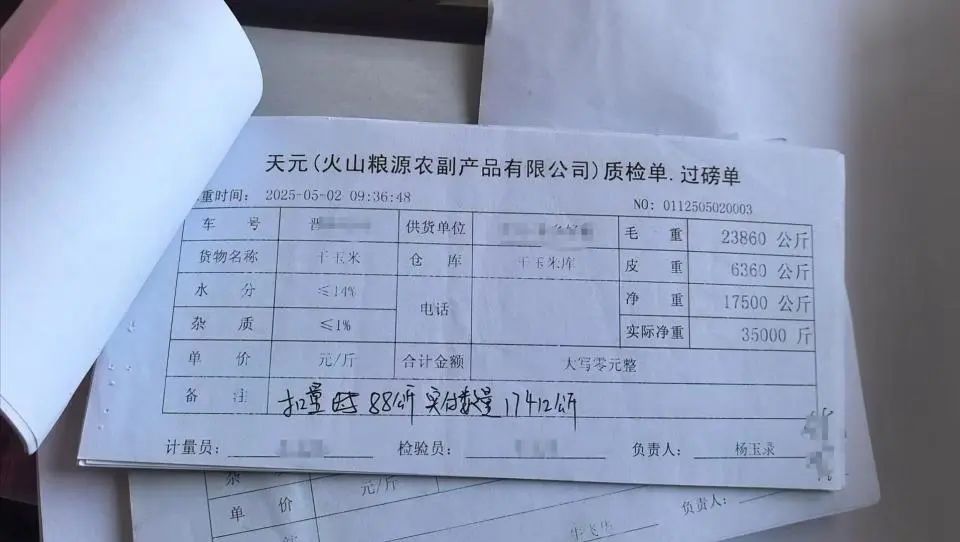 天元(火山粮源农副产品有限公司)质检单.过磅单
重时间: 2025-05-02 09:36:48 NO: 0112505020003
车 号 晋 供货单位 毛 重 23860 公斤
货物名称 干玉米 仓 库 干玉米库 皮 重 6360 公斤
水 分 ≤14% 电话 净 重 17500 公斤
杂 质 ≤1% 实际净重 35000 斤
单 价 元/斤 合计金额 大写零元整
备 注 扣量 88公斤 实付数量 17412公斤
计量员: 检验员: 负责人: 杨玉录
杂
单 价 元/斤 负责人: